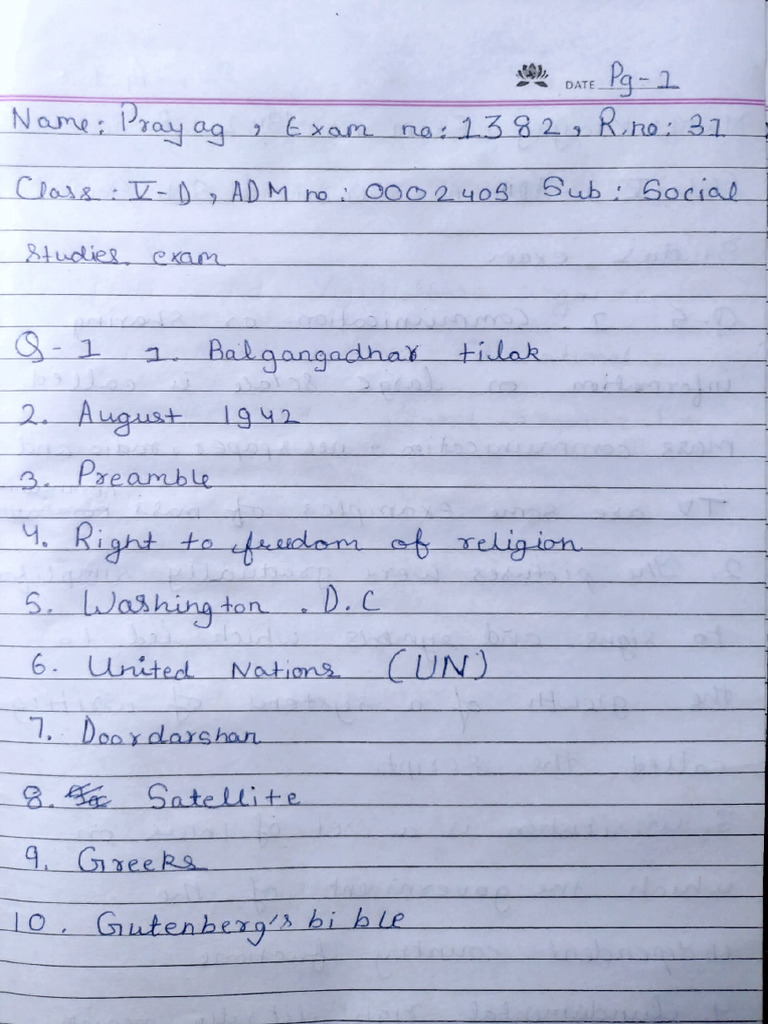 DATE Pg-1
Name: Prayag, Exam no: 1382, R.no: 31
Class: V-D, ADM no: 0002405 Sub: Social
Studies exam
Q-1 1. Balgangadhar tilak
2. August 1942
3. Preamble
4. Right to freedom of religion
5. Washington .D.C
6. United Nations (UN)
7. Doordarshan
8. Satellite
9. Greeks
10. Gutenberg's bible